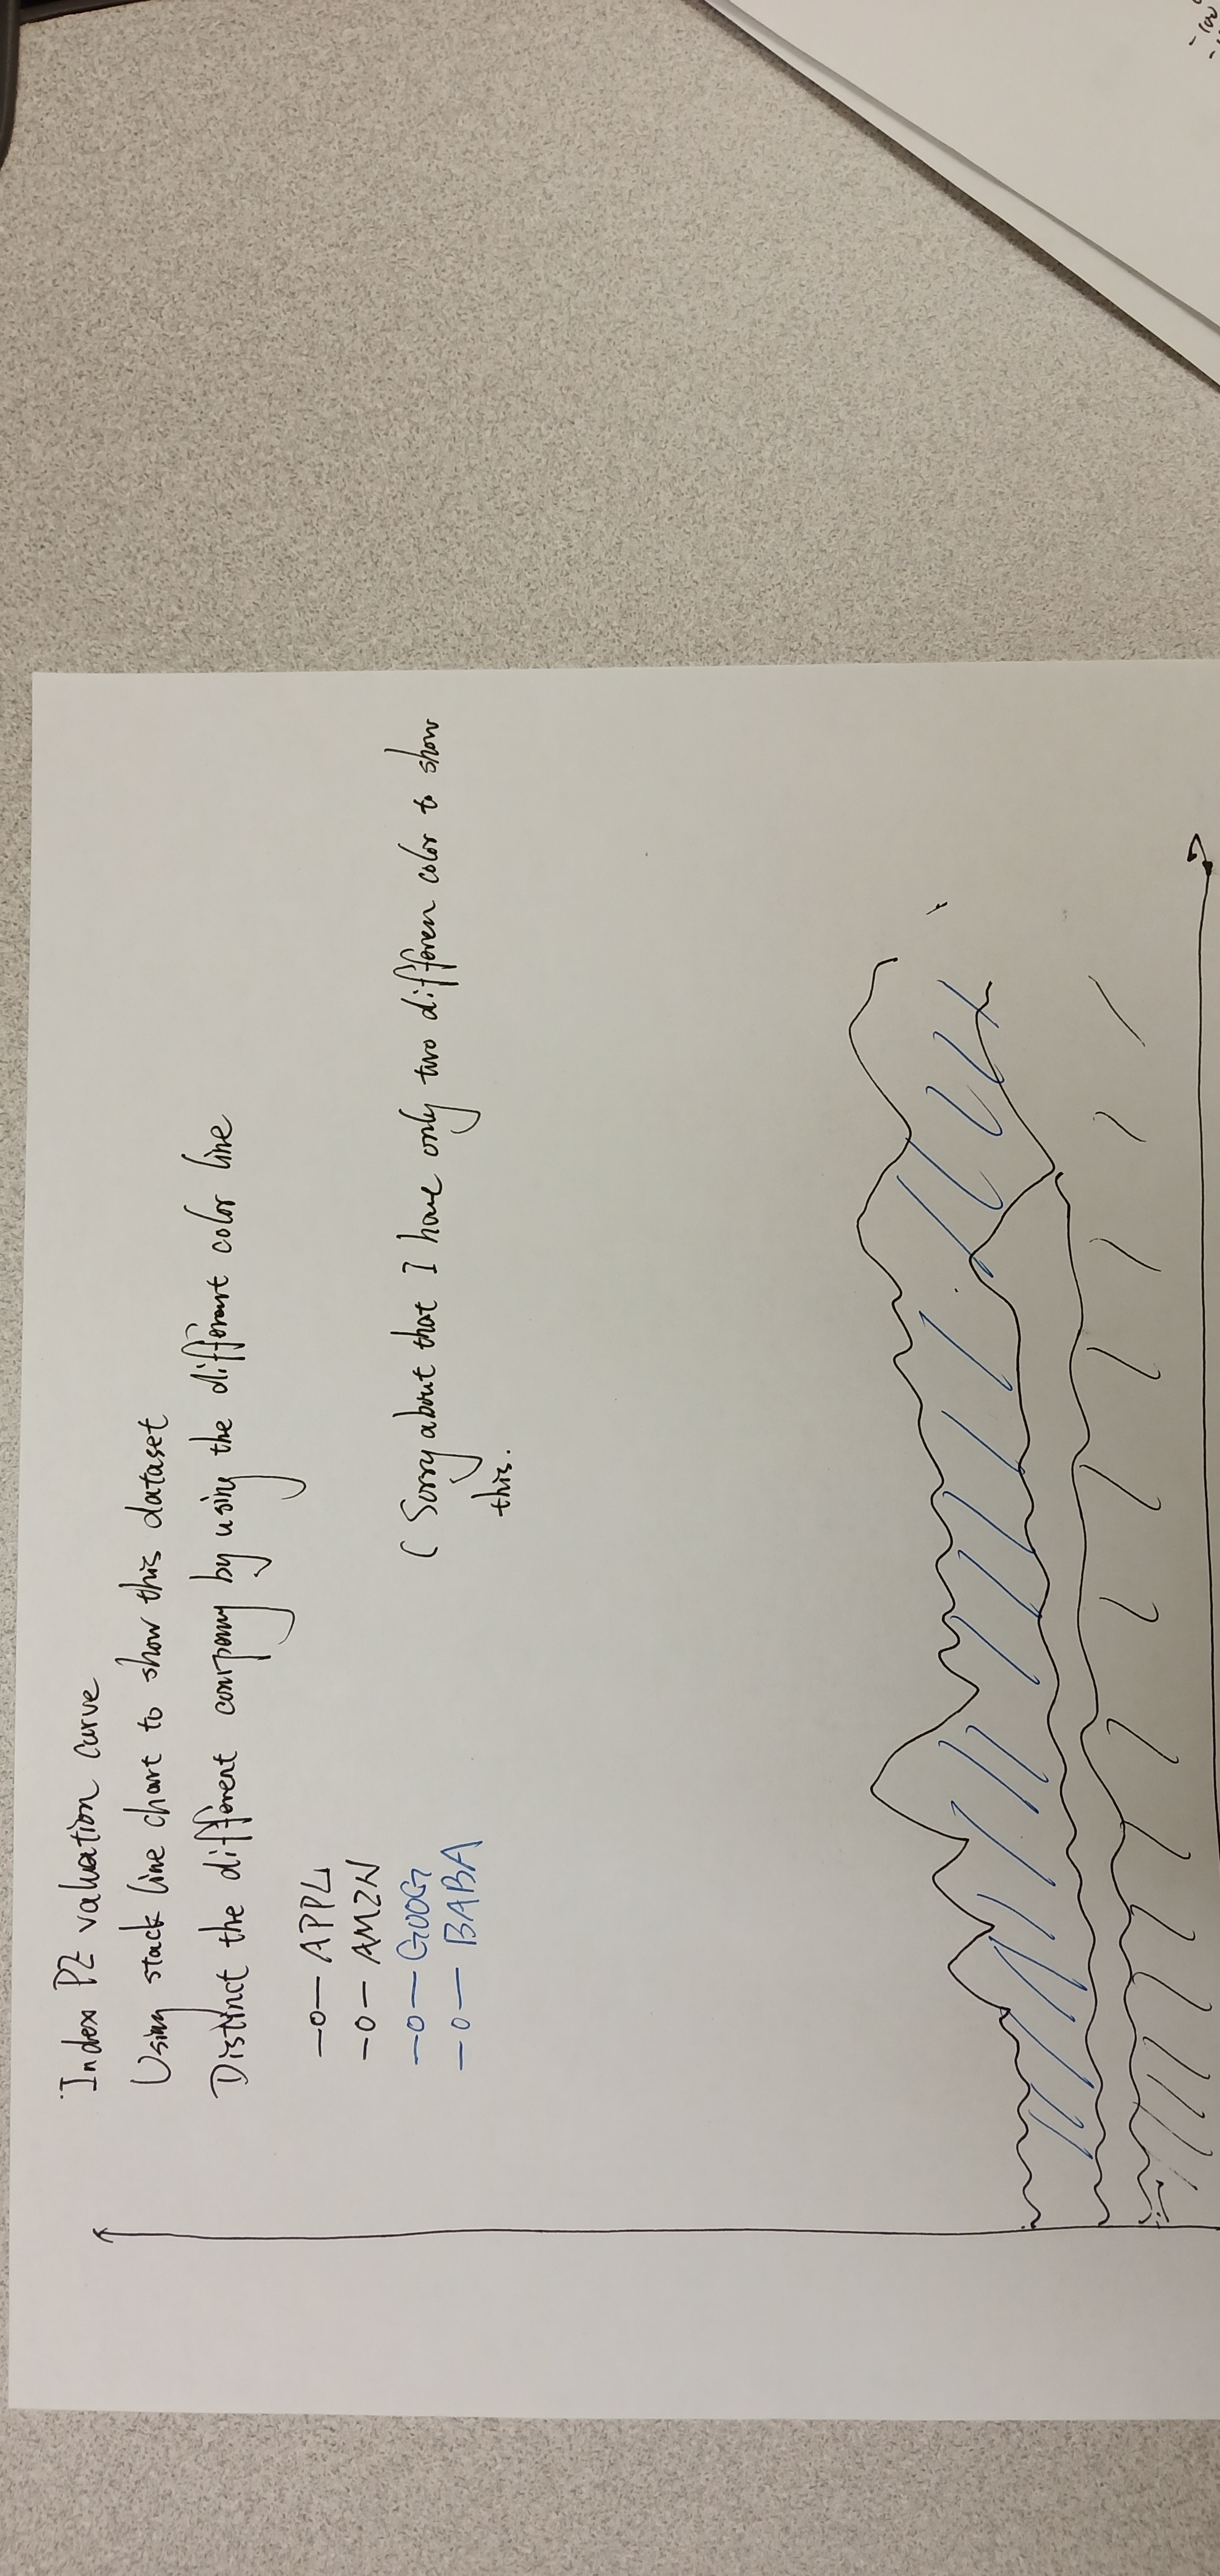 Index PE valuation curve
Using stack line chart to show this dataset
Distinct the different company by using the different color line
APPL
AMZN
GOOG
BABA
(Sorry about that I have only two differen color to show
this.